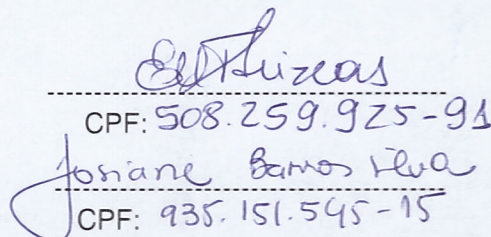 CPF: 508.259.925-91
Josiane Barros Silva
CPF: 935.151.545-15